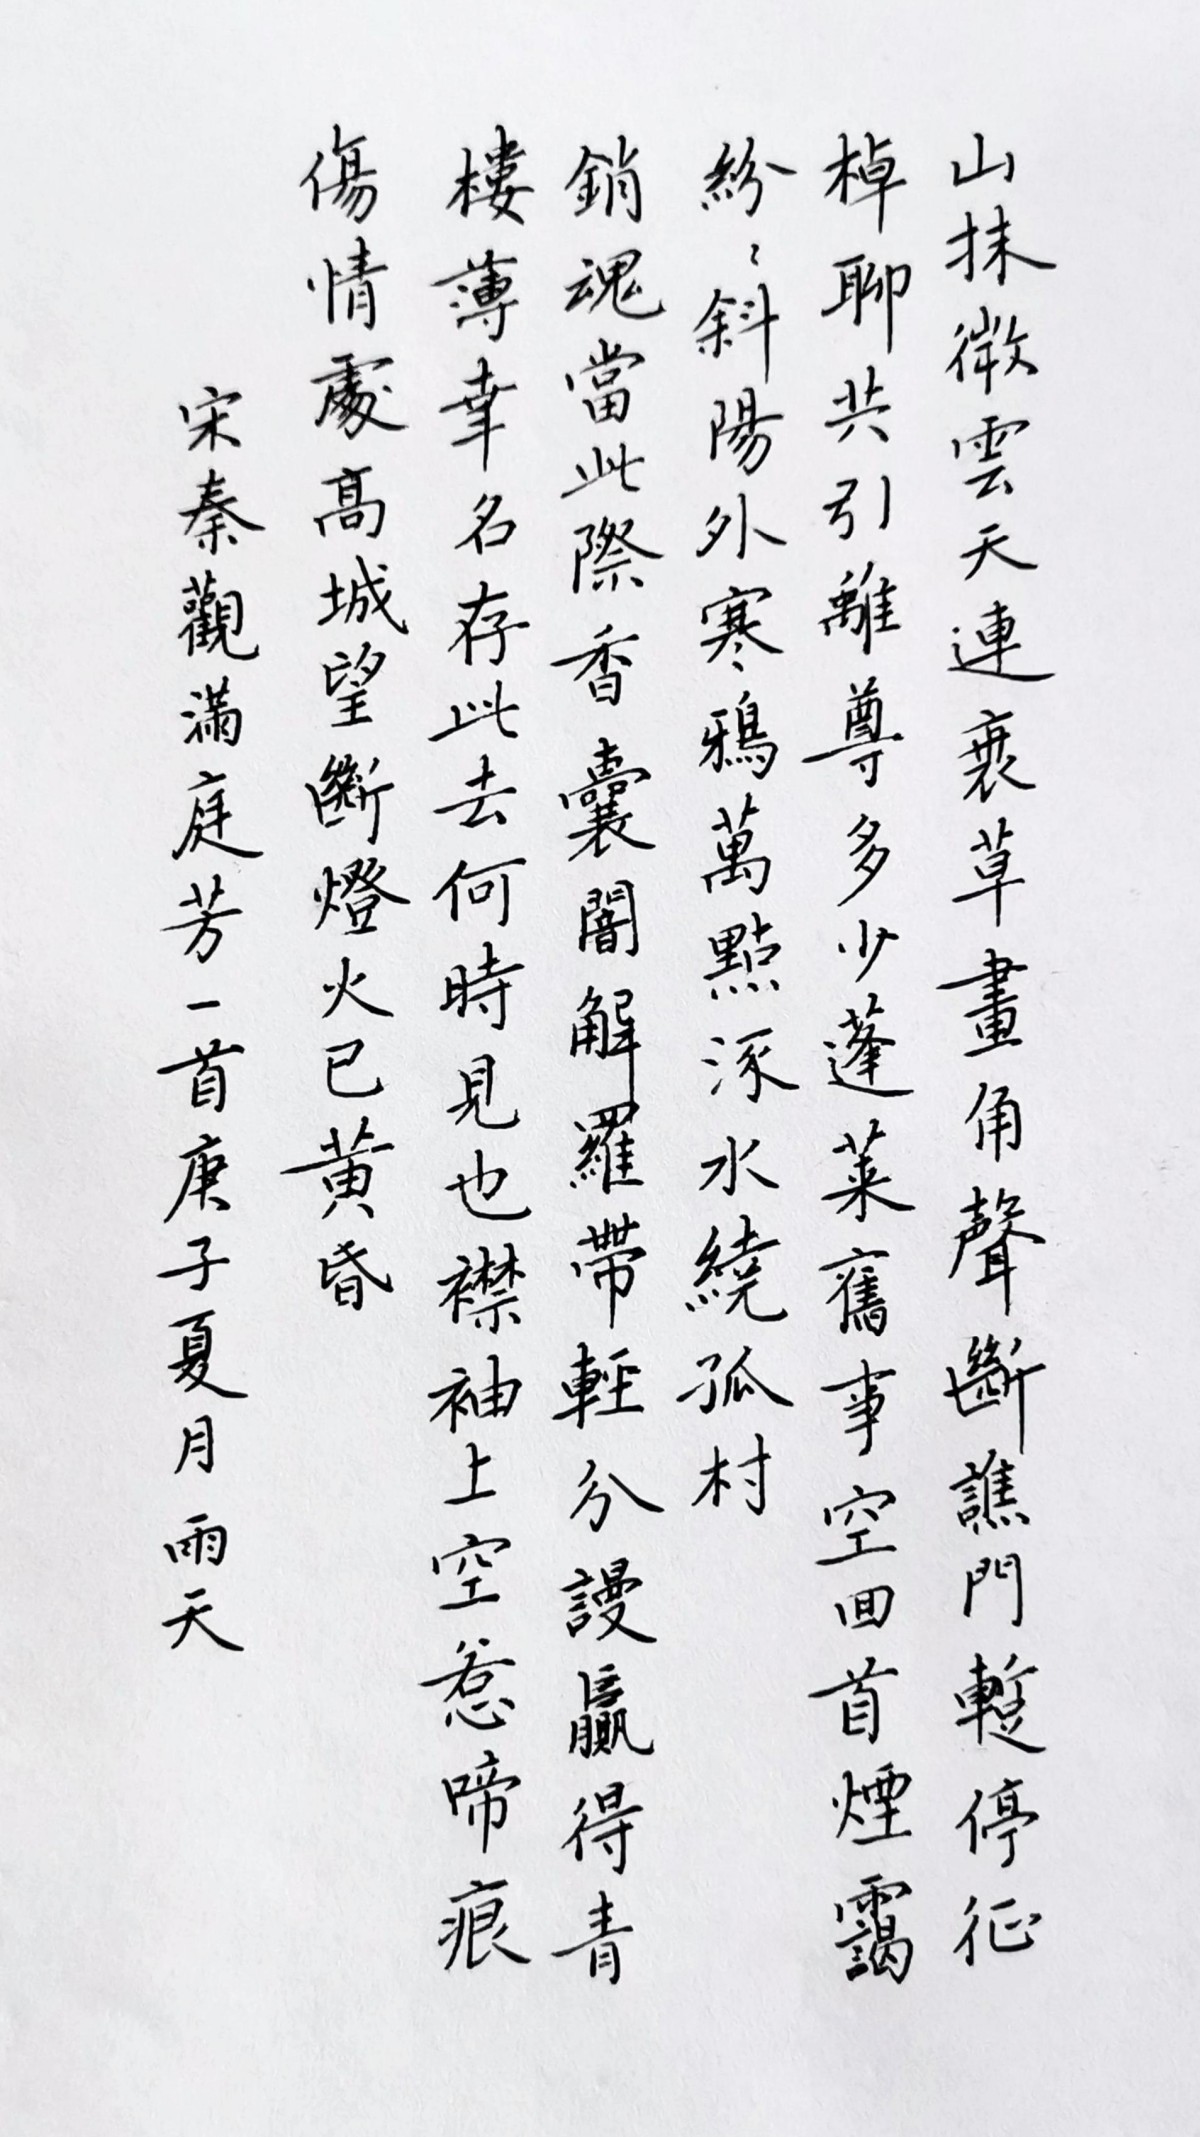 山抹微雲天連衰草畫角聲斷譙門暫停征
棹聊共引離尊多少蓬萊舊事空回首煙靄
紛〻斜陽外寒鴉萬點流水繞孤村
銷魂當此際香囊闇解羅帶輕分謾贏得青
樓薄幸名存此去何時見也襟袖上空惹啼痕
傷情處高城望斷燈火已黃昏
宋秦觀滿庭芳一首庚子夏月雨天